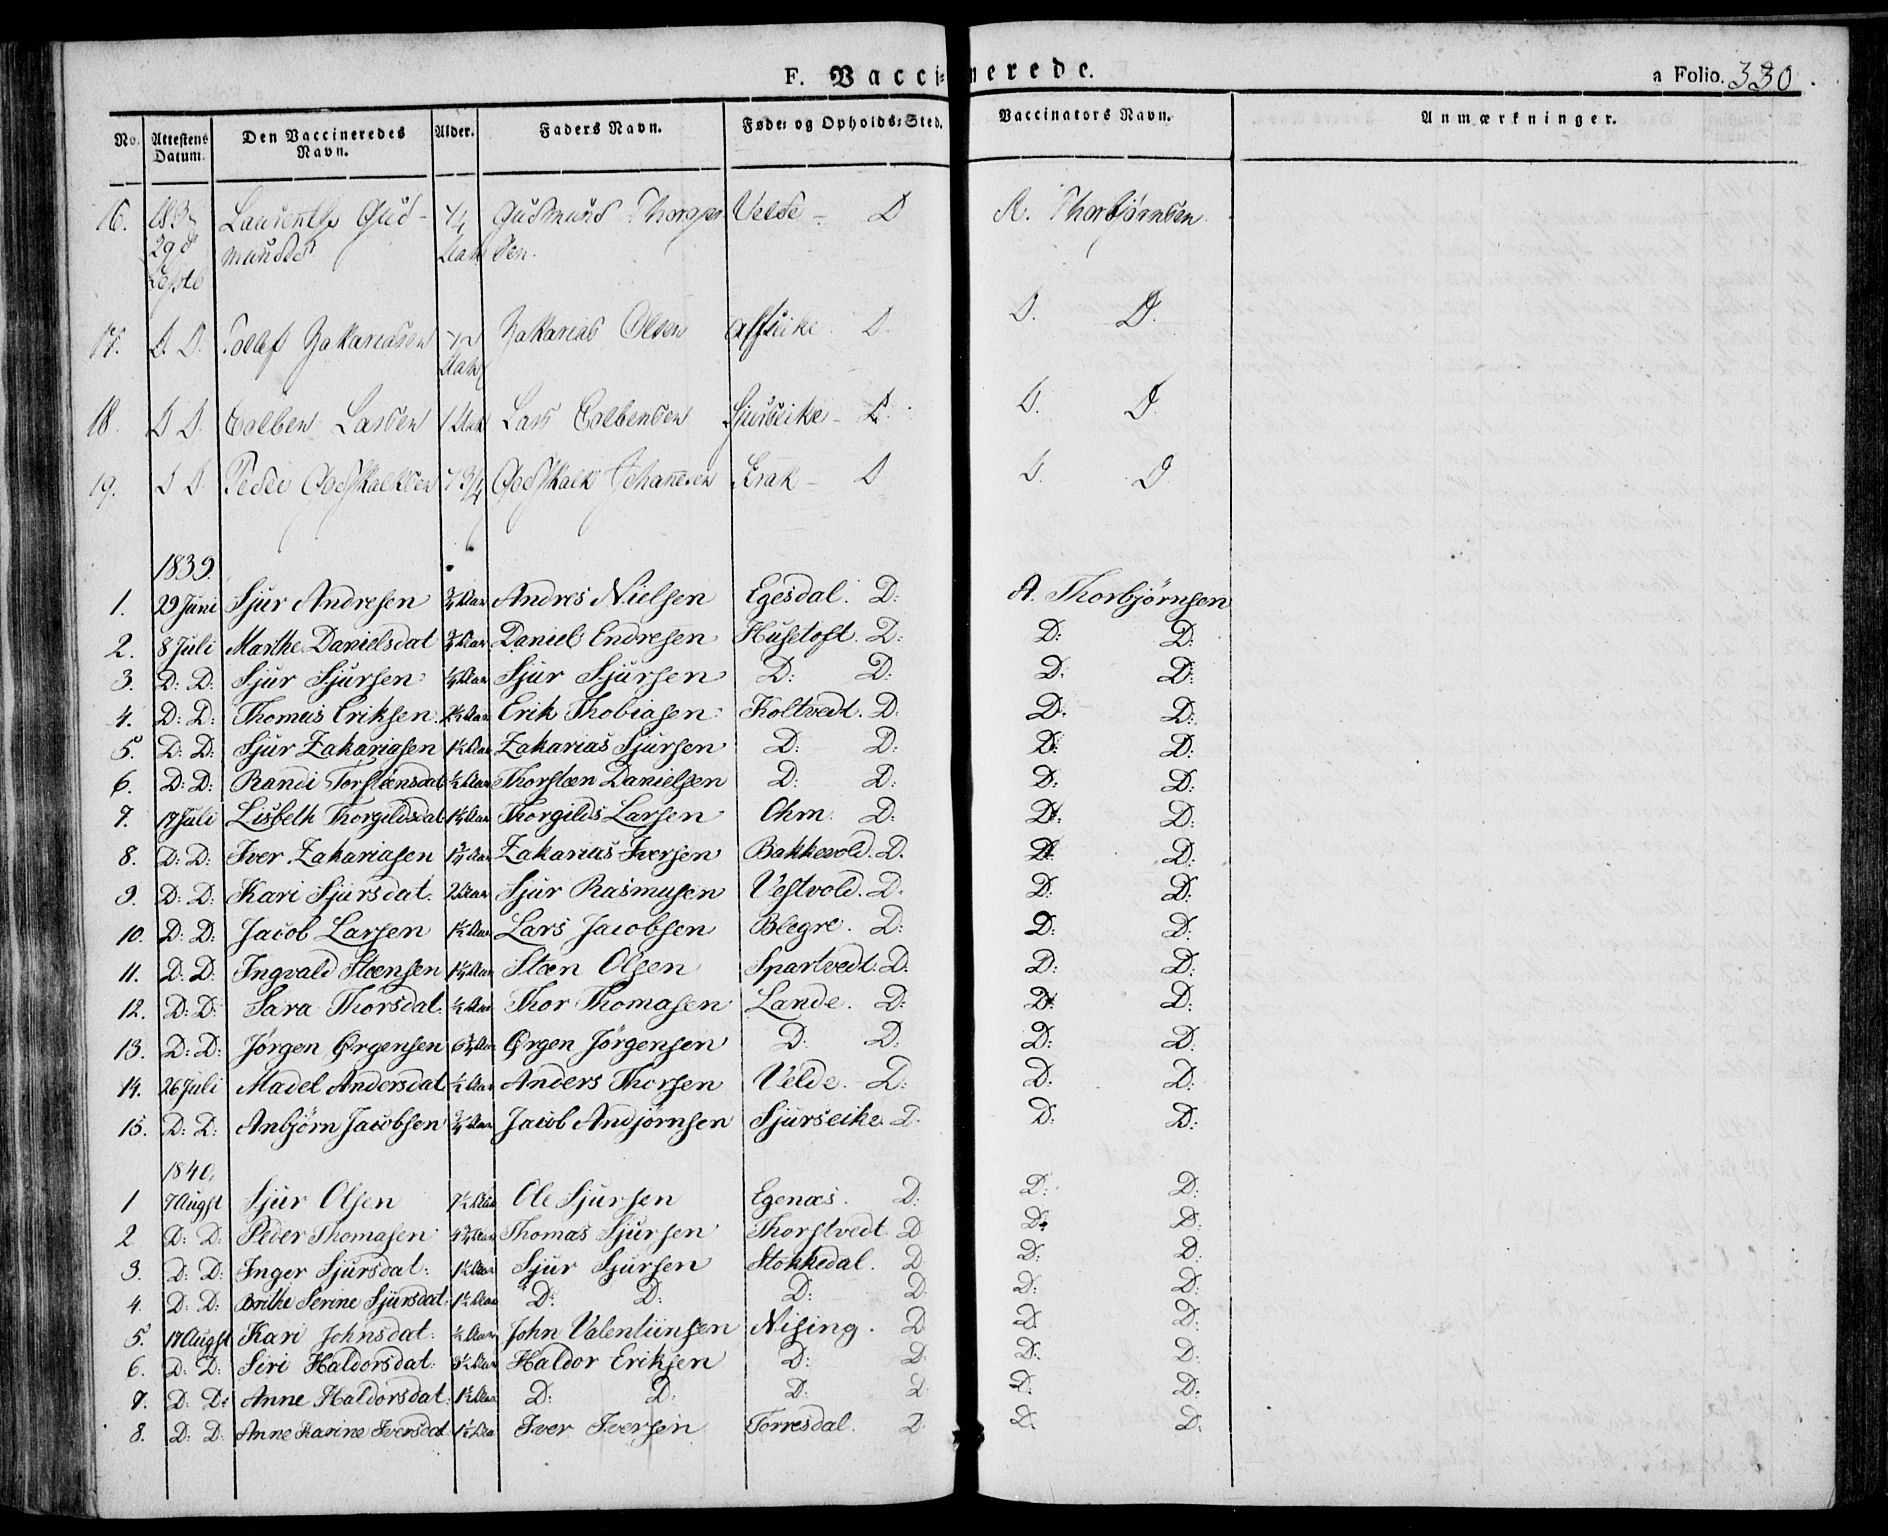 F. Vaccinerede. a Folio. 330.
No. Attestens Datum. Den Vaccineredes Navn. Alder. Faders Navn. Føde- og Opholds-Sted. Vaccinators Navn. Anmærkninger.
16. Gud- 1/4 Gudmund Velde – D A. Thorbjørnsen
29d mundsd Aar sen.
Septb
17. D. D. Zakariasen 1/2 Zakarias Olsen D. D. D.
Aar
18. D D. Colben Larsen 1 Aar Lars Colbensen Sjurseike – D. D. D.
19. D D. Peder Godskalksen 7 3/4 Godskalk Johannesen – D D. D
1839.
1. 29 Juni Sjur Andresen 3/4 Aar Andres Nielsen Egesdal. D: A. Thorbjørnsen
2. 8 Juli Marthe Danielsdat 3/4 Aar Daniel Endresen Husetoft. D: D: D:
3. D: D: Sjur Sjursen Aar Sjur Sjursen D: D: D: D:
4. D: D: Thomas Eriksen. Aar Erik Thobiasen Koltvedt. D: D: D:
5. D: D: Sjur Zakariasen 1½ Aar Zakarias Sjursen D: D: D: D:
6. D: D: Randi Torstensdat ½ Aar Thorsten Danielsen D: D: D: D:
7. 17 Juli Lisbeth Thorgildsdat Aar Thorgilds Larsen Ohm. D: D: D:
8. D: D: Iver Zakariasen Aar Zakarias Iversen Bakkevold. D. D: D:
9. D: D: Kari Sjursdat. 2 Aar Sjur Rasmusen Vestvold. D. D: D:
10. D: D: Jacob Larsen 1½ Aar Lars Jacobsen Blegre. D: D: D:
11. D: D: Ingvald Steensen Aar Steen Olsen Spartvedt. D. D: D:
12. D: D: Sara Thorsdat. Aar Thor Thomasen Lande. D: D: D:
13. D: D: Jørgen Ørgensen Aar Ørgen Jørgensen D: D: D: D:
14. 26 Juli Madel Andersdat ½ Aar Anders Thorsen Velde. D: D. D:
15. D: D: Anbjørn Jacobsen 3/4 Aar Jacob Andjørnsen Sjurseike. D. D: D:
1840.
1 7 Augst Sjur Olsen 7½ Aar Ole Sjursen Egenæs. D: D: D:
2 D: D. Peder Thomasen 4 3/4 Aar Thomas Sjursen Thorstvedt D D: D:
3. D: D: Inger Sjursdat: 1½ Aar Sjur Sjursen Stokkedal. D D: D:
4. D: D: Brithe Serine Sjursdat: 1½ Aar D: D: D: D: D: D:
5. 17 Augst Kari Johnsdat: ½ Aar John Valentinsen Nising. D D. D:
6. D: D: Siri Haldorsdat: 3½ Aar Haldor Eriksen D: D: D: D:
7. D: D: Anne Haldorsdat. 1½ Aar D: D: D: D D: D:
8. D: D. Anne Karine Iversdat 1½ Aar Iver Iversen Torresdal. D. D: D: